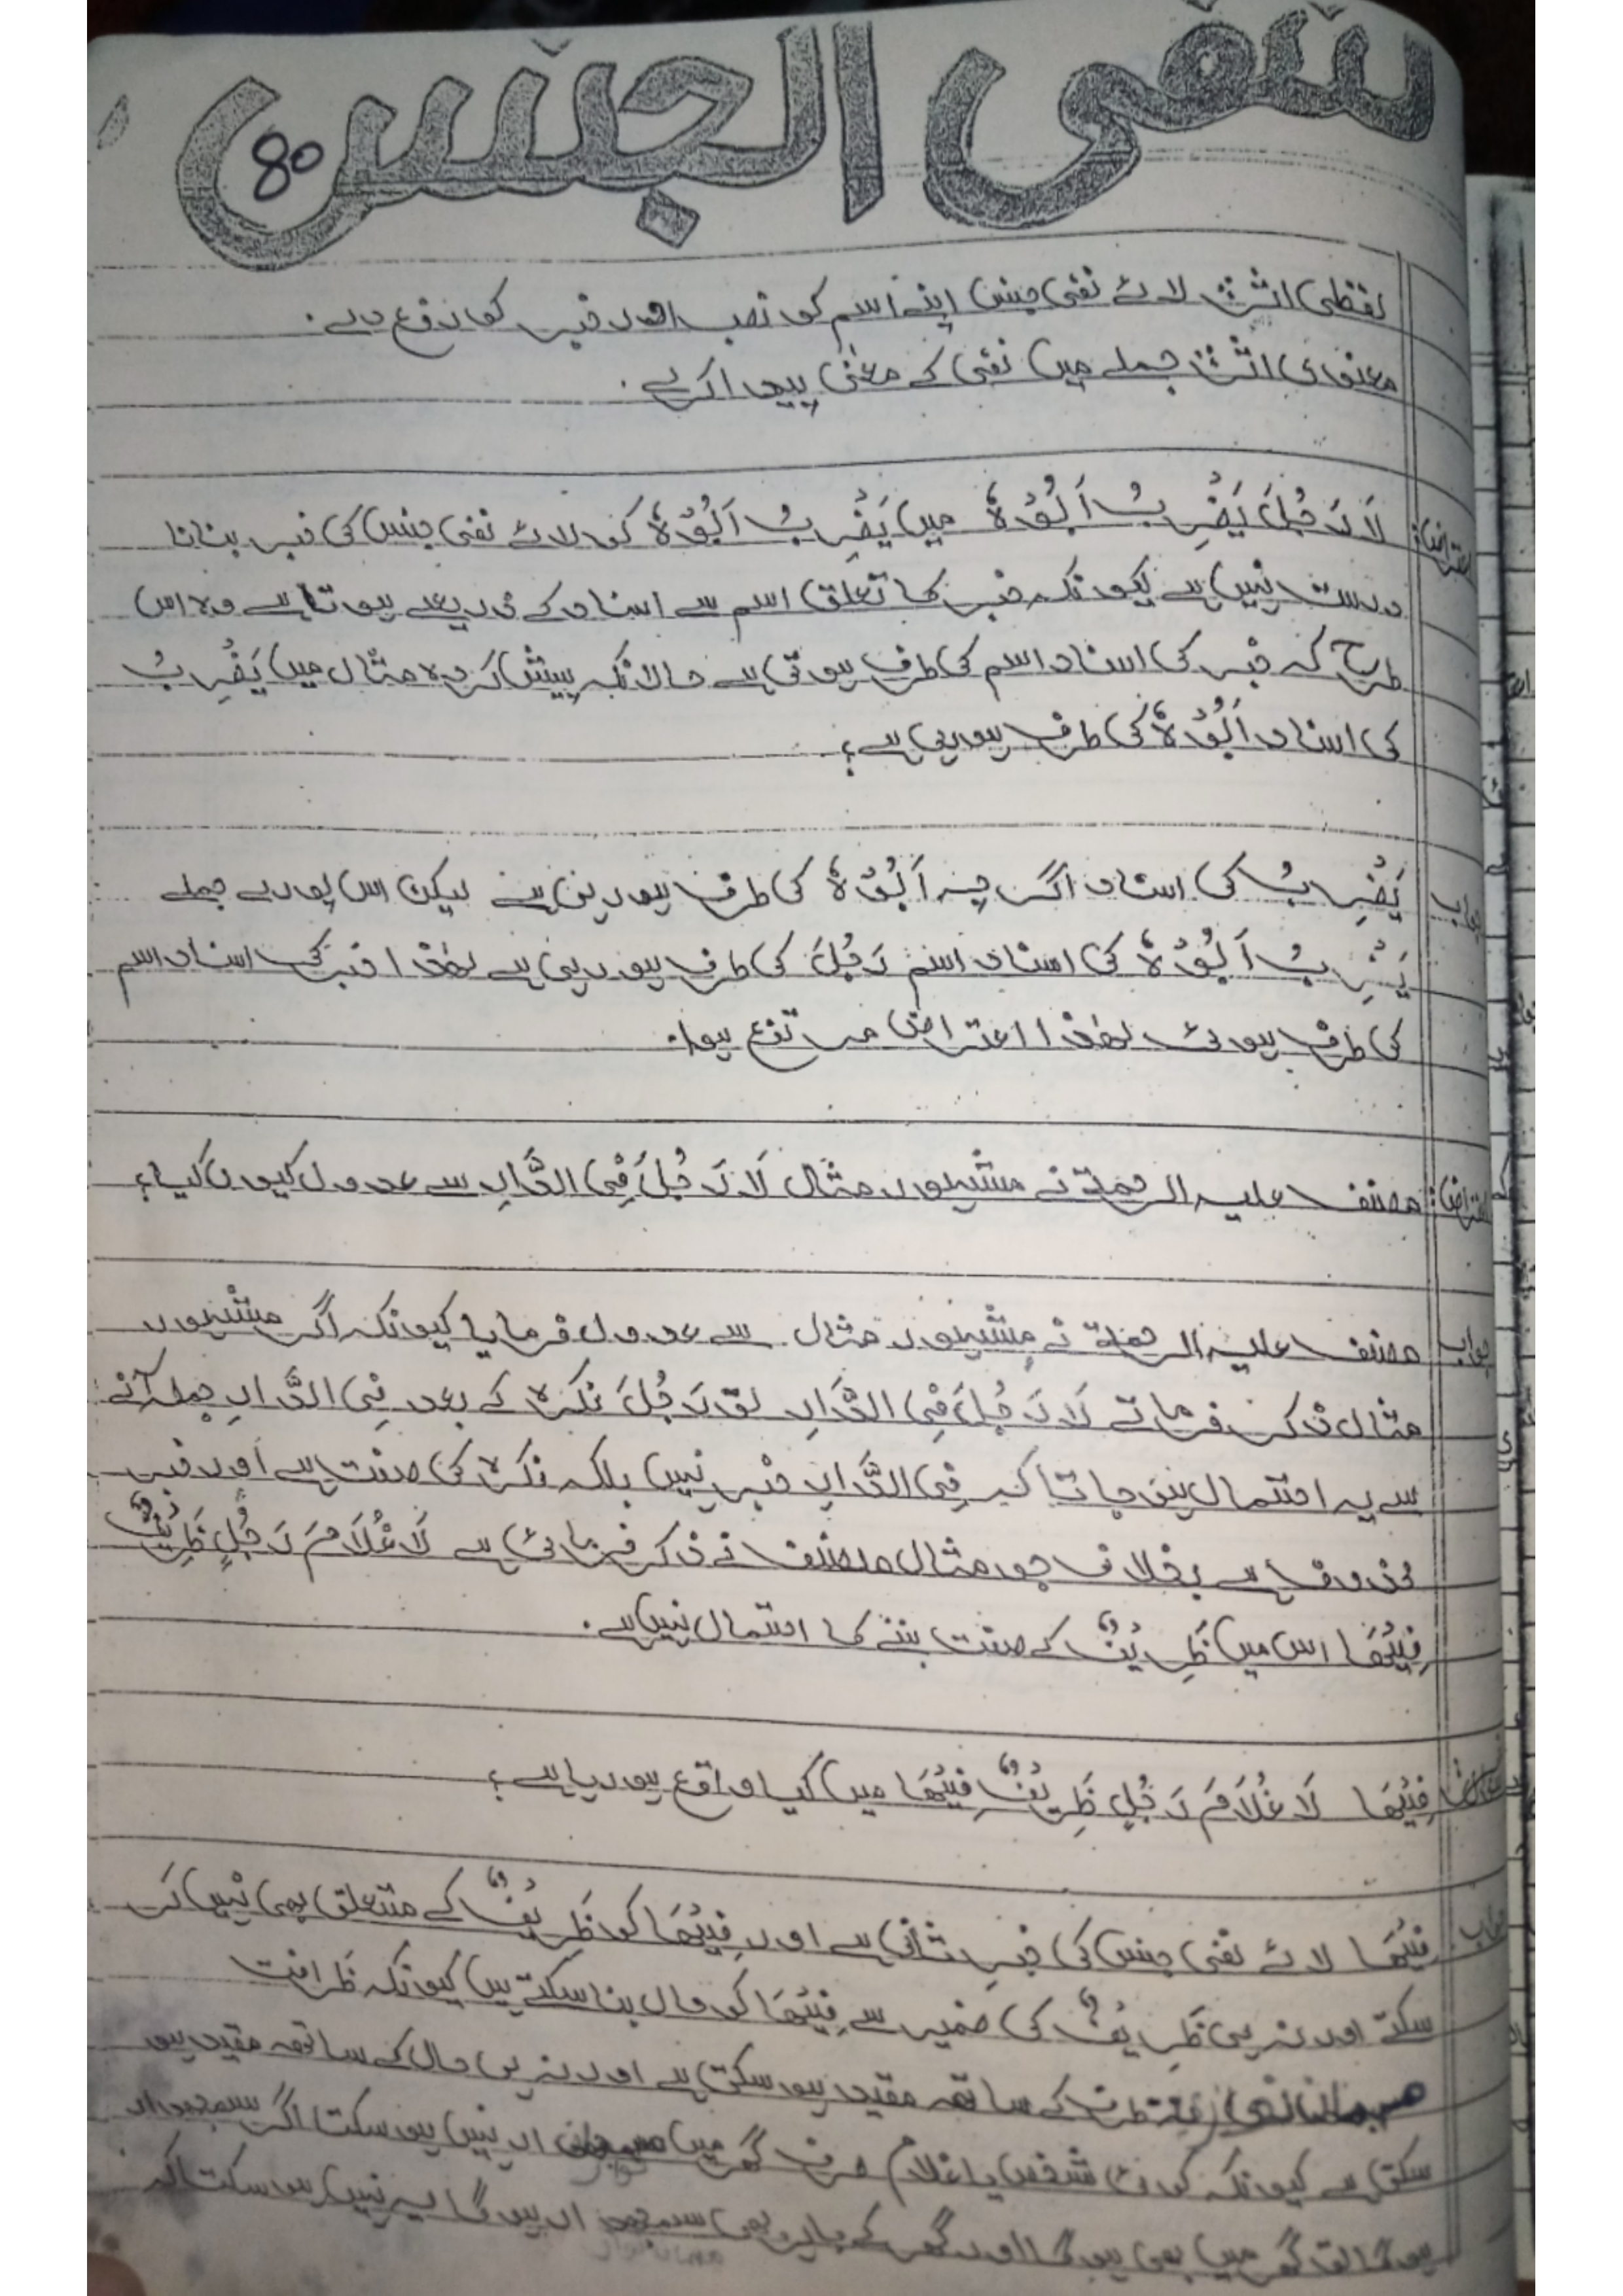 نفی الجنس
80
لفظی اثر: لائے نفی جنس اپنے اسم کو نصب اور خبر کو رفع دے۔
معنوی اثر: جملے میں نفی کے معنیٰ پیدا کرے۔
اعتراض: لَا رَجُلَ یَضْرِبُ اَبُوْہٗ میں یَضْرِبُ اَبُوْہٗ کو لائے نفی جنس کی خبر بنانا
درست نہیں ہے کیونکہ خبر کا تعلق اسم سے اسناد کے ذریعے ہوتا ہے وہ اس
طرح کہ خبر کی اسناد اسم کی طرف ہوتی ہے حالانکہ پیش کردہ مثال میں یَضْرِبُ
کی اسناد اَبُوْہٗ کی طرف ہو رہی ہے؟
جواب یَضْرِبُ کی اسناد اگرچہ اَبُوْہٗ کی طرف ہو رہی ہے لیکن اس پورے جملے
یَضْرِبُ اَبُوْہٗ کی اسناد اسم رَجُلَ کی طرف ہو رہی ہے لھٰذا خبر کی اسناد اسم
کی طرف ہوئی لھٰذا اعتراض مرتفع ہوا۔
اعتراض: مصنف علیہ الرحمۃ نے مشہور مثال لَا رَجُلَ فِی الدَّارِ سے عدول کیوں کیا؟
جواب مصنف علیہ الرحمۃ نے مشہور مثال سے عدول فرمایا کیونکہ اگر مشہور
مثال ذکر فرماتے لَا رَجُلَ فِی الدَّارِ تو رَجُلَ نکرہ کے بعد فِی الدَّارِ جملہ آنے
سے یہ احتمال بن جاتا کہ فِی الدَّارِ خبر نہیں بلکہ نکرہ کی صفت ہے اور خبر
محذوف ہے بخلاف جو مثال مصنف نے ذکر فرمائی ہے لَا غُلَامَ رَجُلٍ ظَرِیْفٌ
فِیْھَا اس میں ظَرِیْفٌ کے صفت بننے کا احتمال نہیں ہے۔
فِیْھَا لَا غُلَامَ رَجُلٍ ظَرِیْفٌ فِیْھَا میں کیا واقع ہو رہا ہے؟
جواب فِیْھَا لائے نفی جنس کی خبرِ ثانی ہے اور فِیْھَا کو ظَرِیْفٌ کے متعلق بھی نہیں کر
سکتے اور نہ ہی ظَرِیْفٌ کی ضمیر سے فِیْھَا کو حال بنا سکتے ہیں کیونکہ ظرافت
ظرف کے ساتھ مقید ہو سکتی ہے اور نہ ہی حال کے ساتھ مقید ہو
سکتی ہے کیونکہ کوئی شخص یا غلام صرف گھر میں نہیں ہو سکتا اگر سمجھدار
ہوگا تو گھر میں بھی ہوگا اور گھر کے باہر بھی سمجھدار ہوگا یہ نہیں ہو سکتا کہ